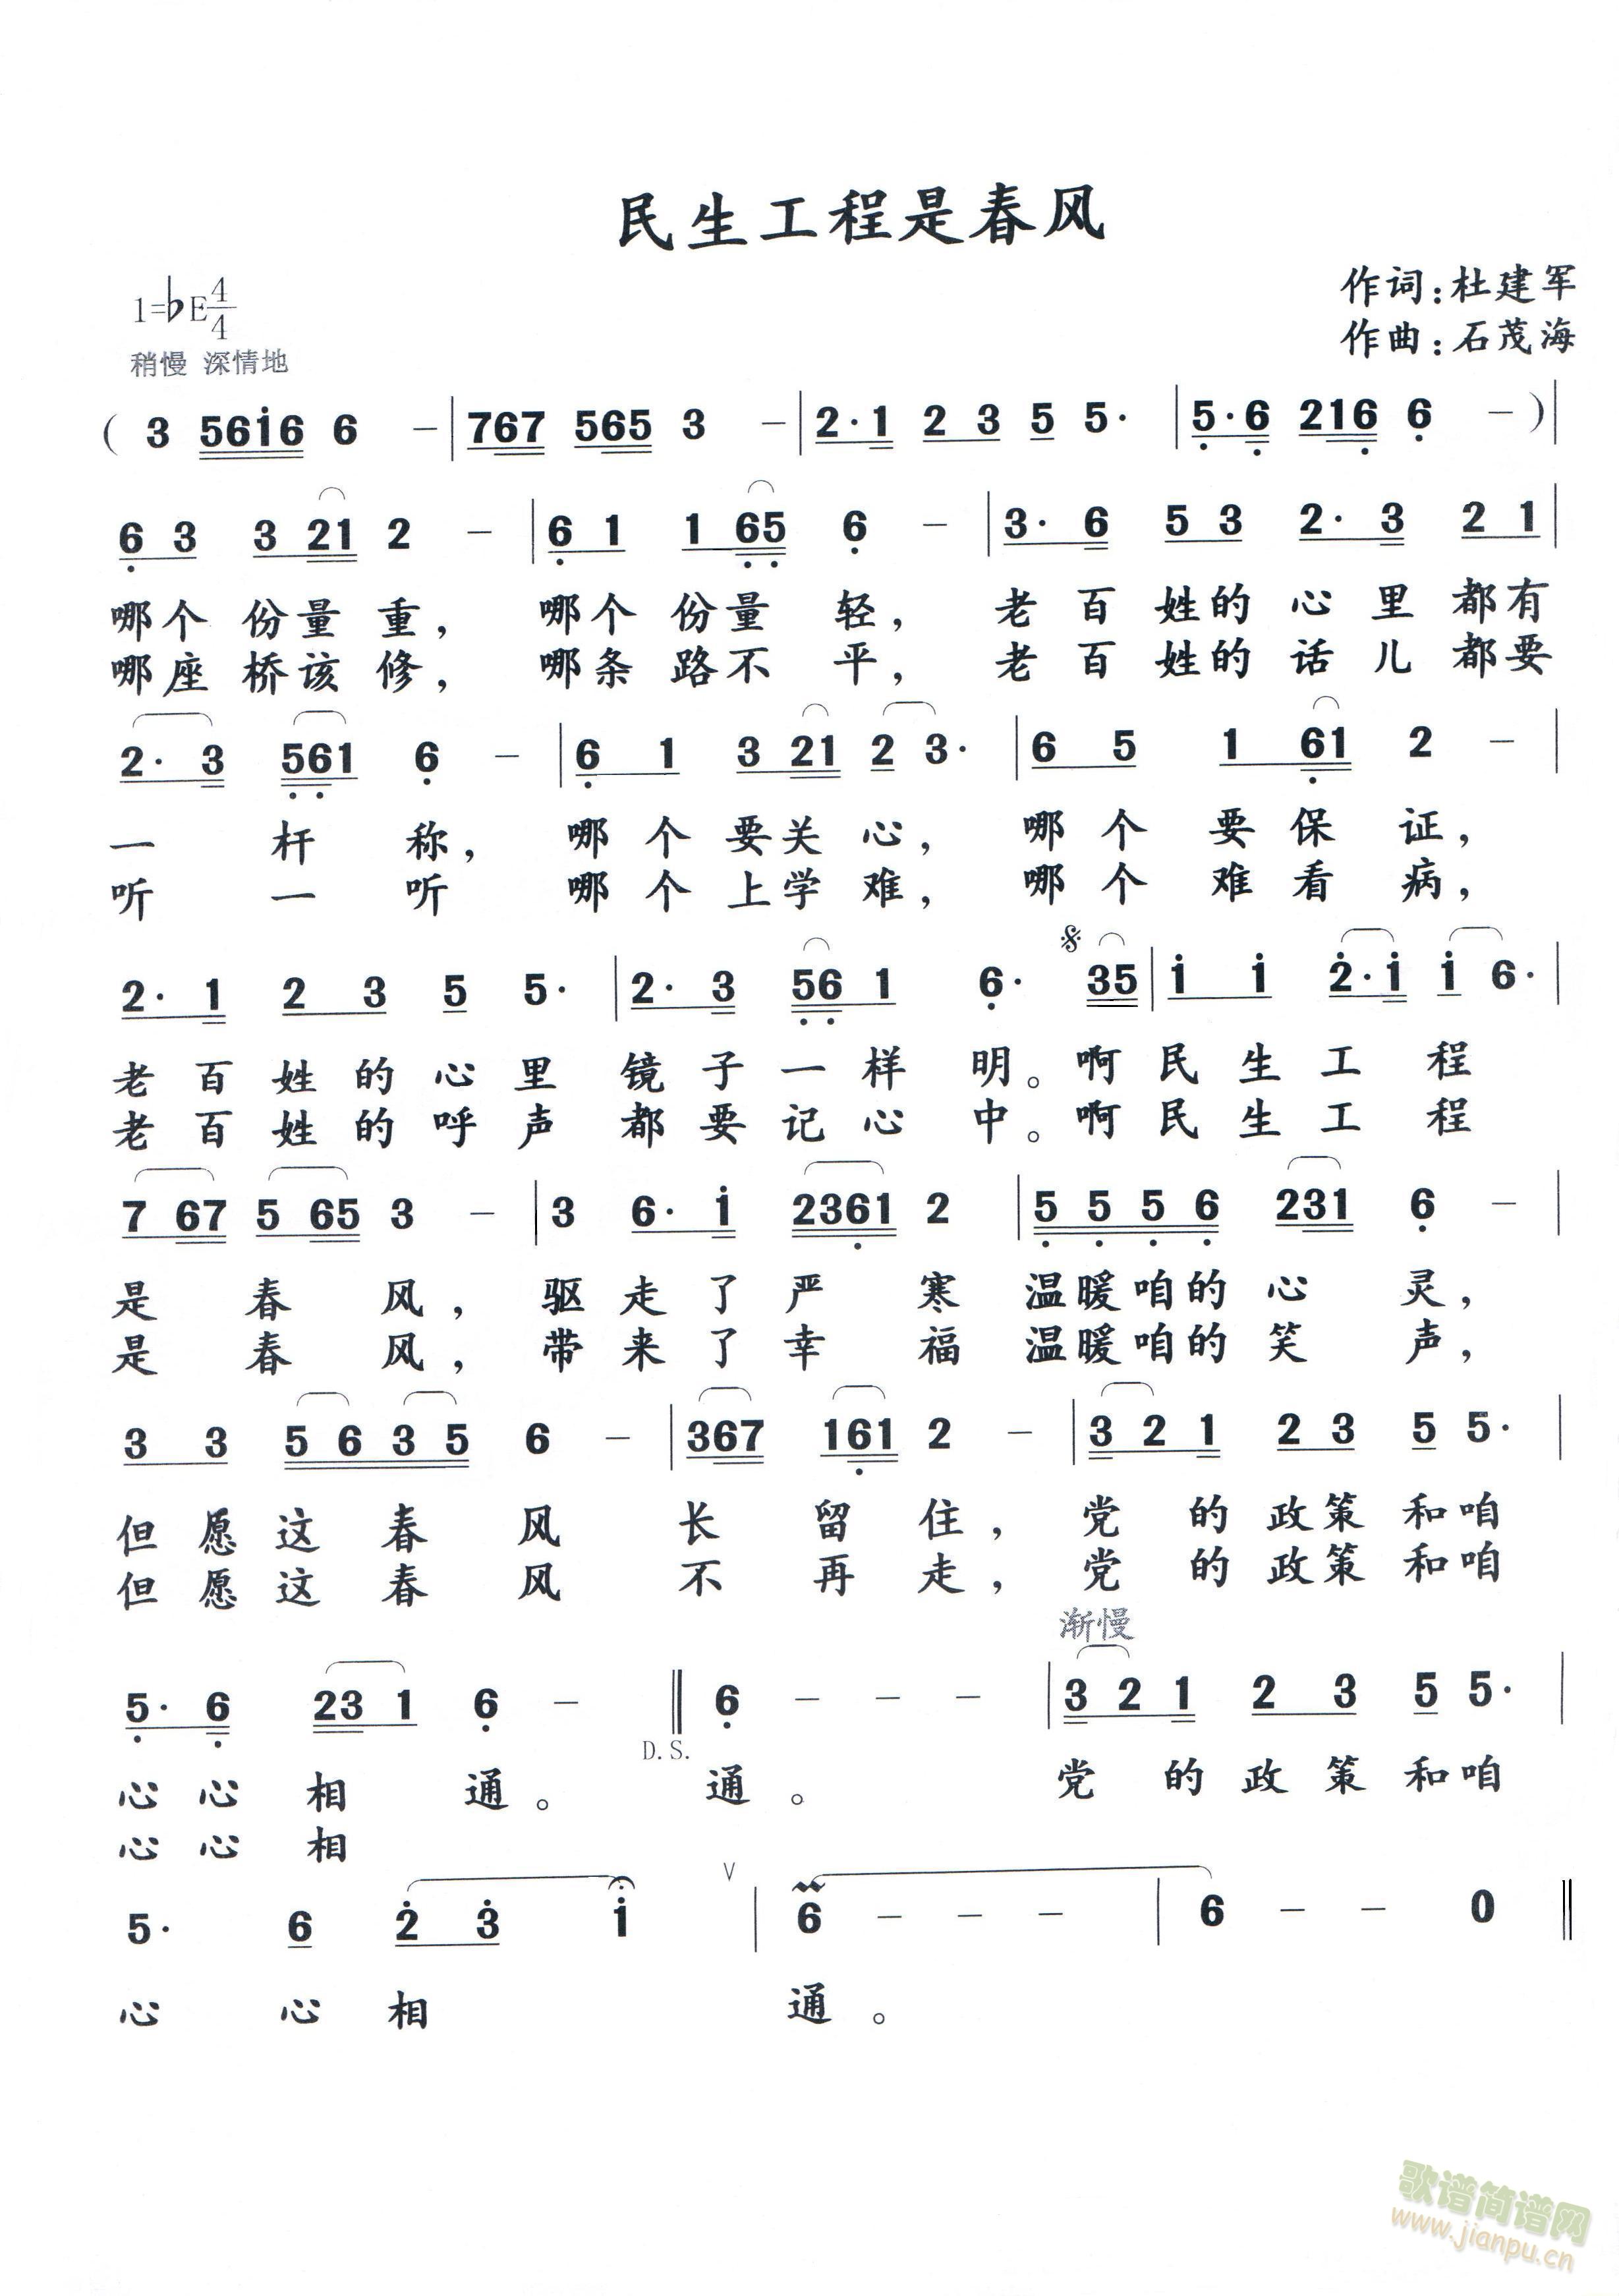 民生工程是春风
1=♭E4/4
作词:杜建军
稍慢 深情地
作曲:石茂海
( 3 56i6 6 - | 767 565 3 - | 2·1 2 3 5 5· | 5·6 216 6 - ) |
6 3 3 21 2 - | 6 1 1 65 6 - | 3· 6 5 3 2· 3 2 1 |
哪个 份量 重, 哪个 份量 轻, 老 百 姓的 心 里 都有
哪座 桥该 修, 哪条 路不 平, 老 百 姓的 话 儿 都要
2· 3 561 6 - | 6 1 3 21 2 3· | 6 5 1 61 2 - |
一 杆 称, 哪 个 要关 心, 哪 个 要 保 证,
听 一 听 哪 个 上学 难, 哪 个 难 看 病,
2· 1 2 3 5 5· | 2· 3 56 1 6· 35 | i i 2·i i 6· |
老 百 姓 的 心 里 镜 子 一 样 明。啊 民 生 工 程
老 百 姓 的 呼 声 都 要 记 心 中。啊 民 生 工 程
7 67 5 65 3 - | 3 6· i 2361 2 | 5 5 5 6 231 6 - |
是 春 风, 驱 走 了 严 寒 温暖咱的 心 灵,
是 春 风, 带 来 了 幸 福 温暖咱的 笑 声,
3 3 5 6 3 5 6 - | 367 161 2 - | 3 2 1 2 3 5 5· |
但 愿 这 春 风 长 留 住, 党 的 政策 和咱
但 愿 这 春 风 不 再 走, 党 的 政策 和咱
渐慢
5· 6 23 1 6 - ‖ 6 - - - | 3 2 1 2 3 5 5· |
D.S.
心 心 相 通。 通。 党 的 政 策 和咱
心 心 相
5· 6 2 3 i V | 6 - - - | 6 - - 0 ‖
心 心 相 通。
歌谱简谱网
www.jianpu.cn